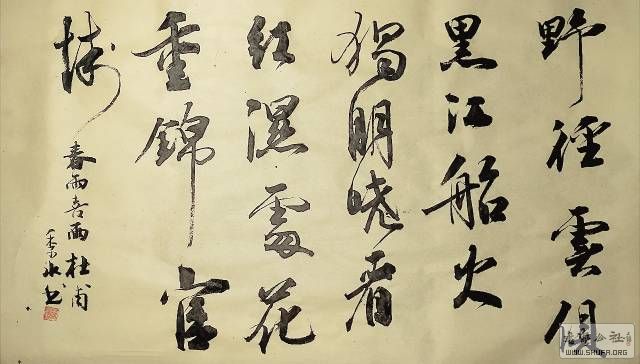 野徑雲俱
黑江船火
獨明曉看
紅濕處花
重錦官
城
春雨喜雨杜甫
水书
WWW.SHUFA.ORG